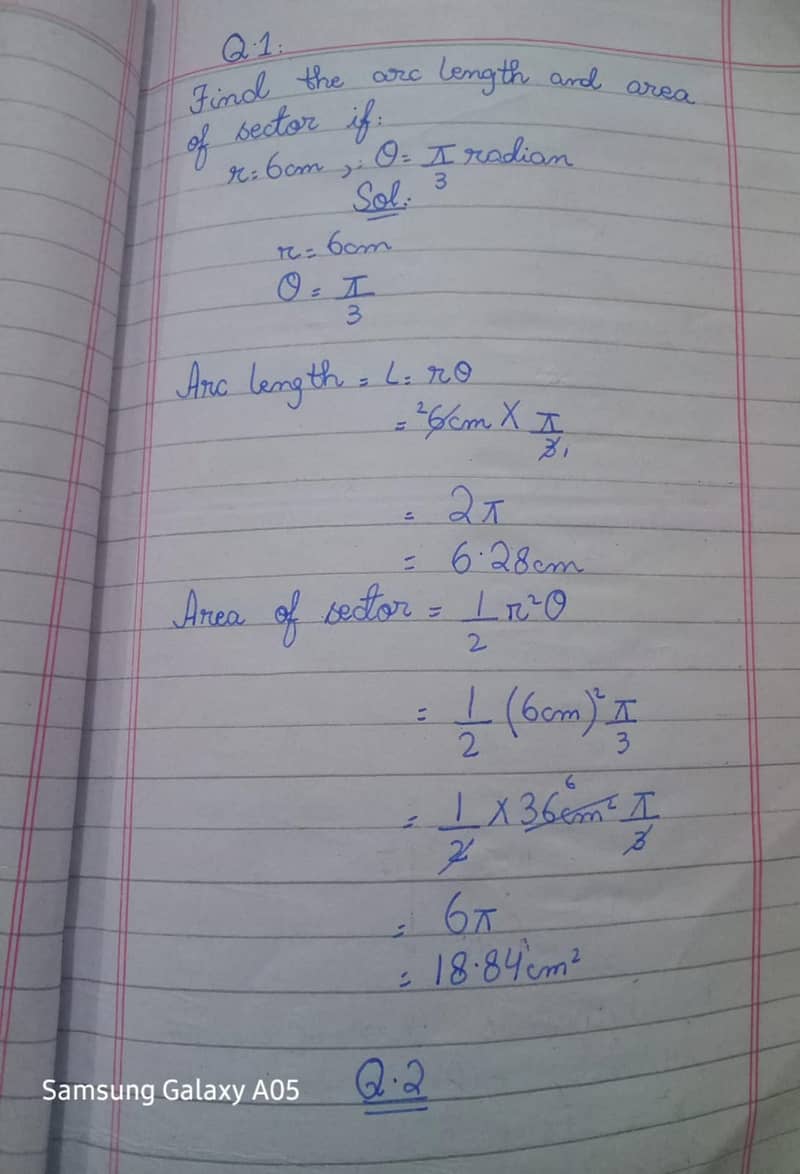 Q.1:
Find the arc length and area
of sector if:
r=6cm, θ=π/3 radian
Sol:
r=6cm
θ=π/3
Arc length = L= rθ
= ²6cm X π/3₁
= 2π
= 6.28cm
Area of sector = 1/2 r²θ
= 1/2 (6cm)² π/3
= 1/2 X 36⁶cm² π/3
= 6π
= 18.84cm²
Q.2
Samsung Galaxy A05